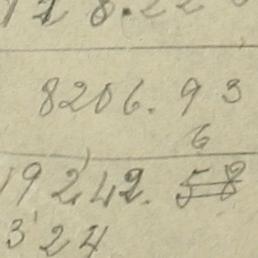 8206.93
6
19242.58
3'24